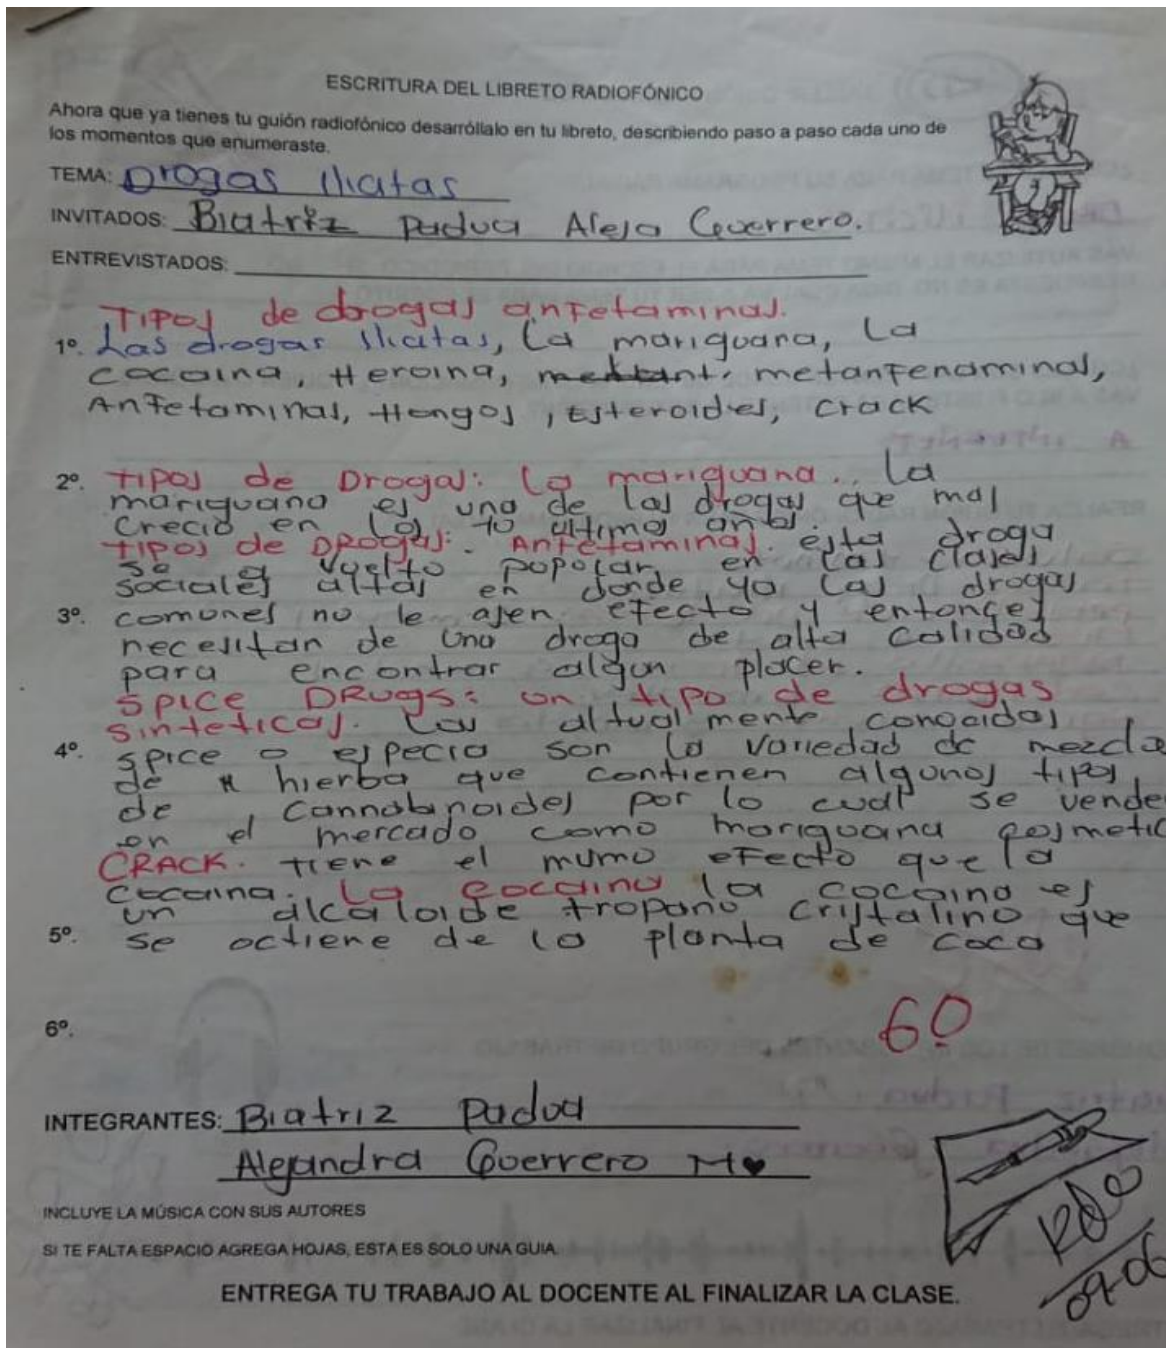 ESCRITURA DEL LIBRETO RADIOFÓNICO
Ahora que ya tienes tu guión radiofónico desarróllalo en tu libreto, describiendo paso a paso cada uno de
los momentos que enumeraste.
TEMA: Drogas Ilicitas
INVITADOS: Biatriz Padua Aleja Guerrero.
ENTREVISTADOS:
Tipos de drogas anfetaminas.
1º. Las drogas Ilicitas, La mariguana, La
cocaina, Heroina, metanfenaminas,
Anfetaminas, Hongos, Esteroides, crack
2º. Tipos de Drogas: La mariguana.. La
mariguana es una de las drogas que mas
Crecio en los 40 ultimos años.
Tipos de DRogas: Anfetaminas. esta droga
se a vuelto popolar en las clases
sociales altas en donde ya las drogas
3º. comunes no le asen efecto y entonces
necesitan de una droga de alta calidad
para encontrar algun placer.
SPICE DRUGS: un tipo de drogas
sinteticas. Las altual mente conocidas
4º. spice o especia son la variedad de mezcla
de hierba que contienen algunos tipos
de cannabinoides por lo cual se vende
en el mercado como mariguana cosmetic
CRACK. tiene el mismo efecto que la
cocaina. La cocaina la cocaina es
un alcaloide tropano cristalino que
5º. se octiene de la planta de coca
6º.
60
INTEGRANTES: Biatriz Padua
Alejandra Guerrero M♥
INCLUYE LA MÚSICA CON SUS AUTORES
SI TE FALTA ESPACIO AGREGA HOJAS, ESTA ES SOLO UNA GUIA.
ENTREGA TU TRABAJO AL DOCENTE AL FINALIZAR LA CLASE.